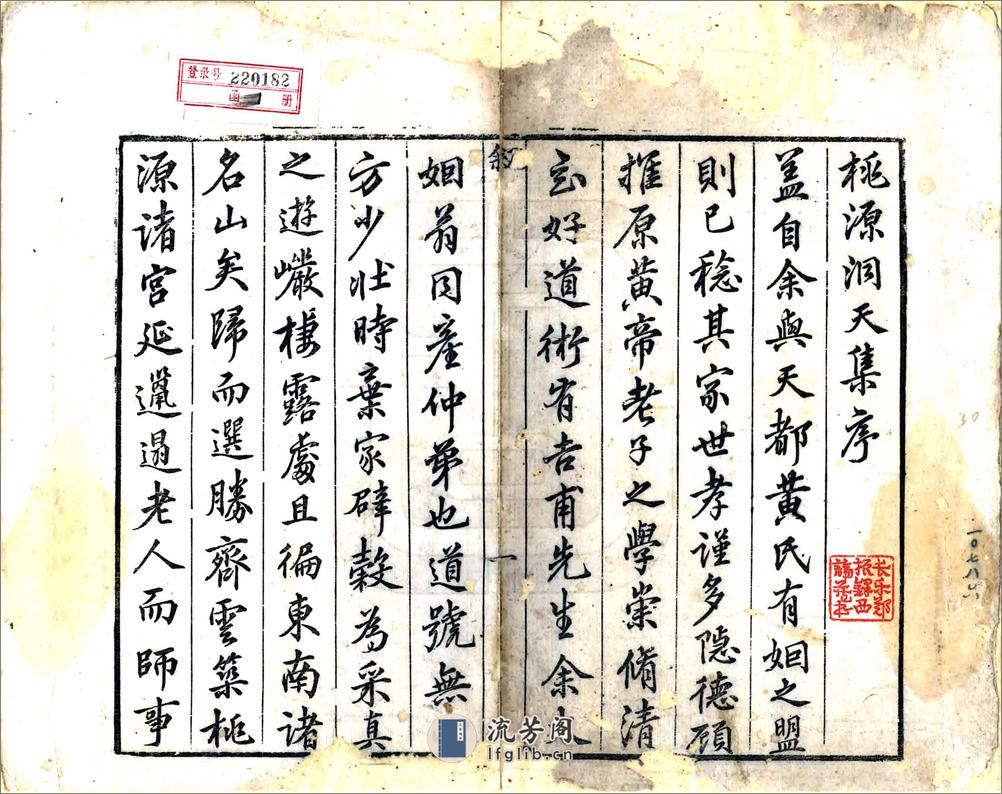 桃源洞天集序
盖自余與天都黄氏有姻之盟
則已稔其家世孝謹多隱德顧
推原黄帝老子之學崇脩清
玄好道術有吉甫先生余
敘
一
姻翁同產仲弟也道號無
方少壯時棄家辟穀為采真
之遊巖棲露處且徧東南諸
名山矣歸而選勝齊雲築桃
源诸宫延邋遢老人而師事
长乐郑
振铎西
谛藏书
登录号 220182
函 册
30
流芳阁
lfglib.cn